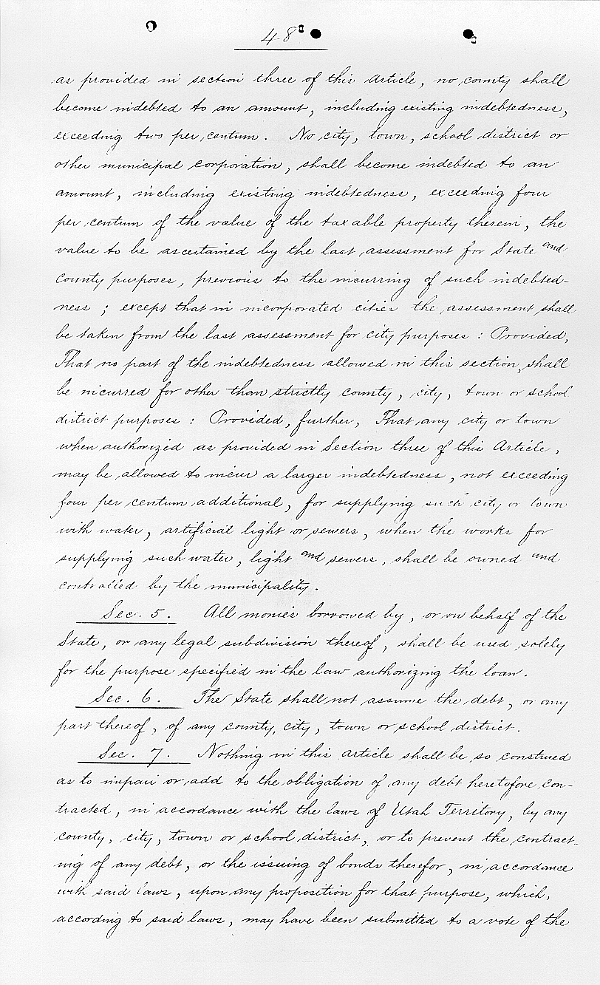 48
as provided in section three of this Article, no county shall
become indebted to an amount, including existing indebtedness,
exceeding two per centum. No city, town, school district or
other municipal corporation, shall become indebted to an
amount, including existing indebtedness, exceeding four
per centum of the value of the taxable property therein, the
value to be ascertained by the last assessment for State and
County purposes, previous to the incurring of such indebted-
ness; except that in incorporated cities the assessment shall
be taken from the last assessment for city purposes: Provided,
That no part of the indebtedness allowed in this section, shall
be incurred for other than strictly county, city, town or school
district purposes: Provided, further, That any city or town
when authorized as provided in Section three of this Article,
may be allowed to incur a larger indebtedness, not exceeding
four per centum additional, for supplying such city or town
with water, artificial light or sewers, when the works for
supplying such water, light and sewers, shall be owned and
controlled by the municipality.
Sec. 5. All monies borrowed by, or on behalf of the
State, or any legal subdivision thereof, shall be used solely
for the purpose specified in the law authorizing the loan.
Sec. 6. The State shall not assume the debt, or any
part thereof, of any county, city, town or school district.
Sec. 7. Nothing in this article shall be so construed
as to impair or add to the obligation of any debt heretofore con-
tracted, in accordance with the laws of Utah Territory, by any
county, city, town or school district, or to prevent the contract-
ing of any debt, or the issuing of bonds therefor, in accordance
with said laws, upon any proposition for that purpose, which,
according to said laws, may have been submitted to a vote of the